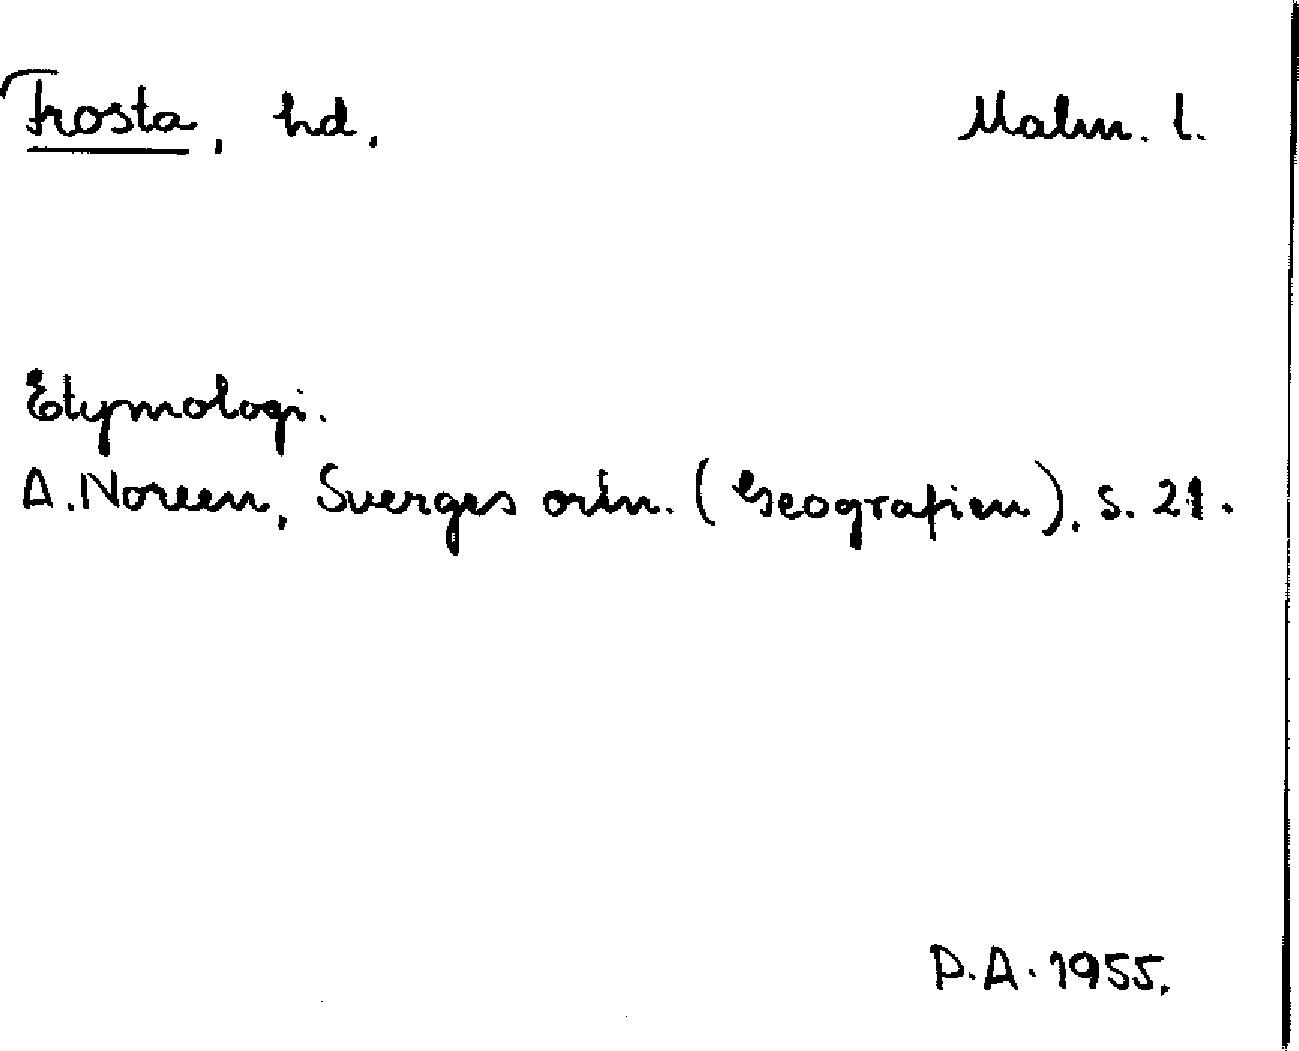 Frosta, hd. Malm. l.
Etymologi.
A. Noreen, Sverges ortn. (Geografien), s. 21.
P.A. 1955.